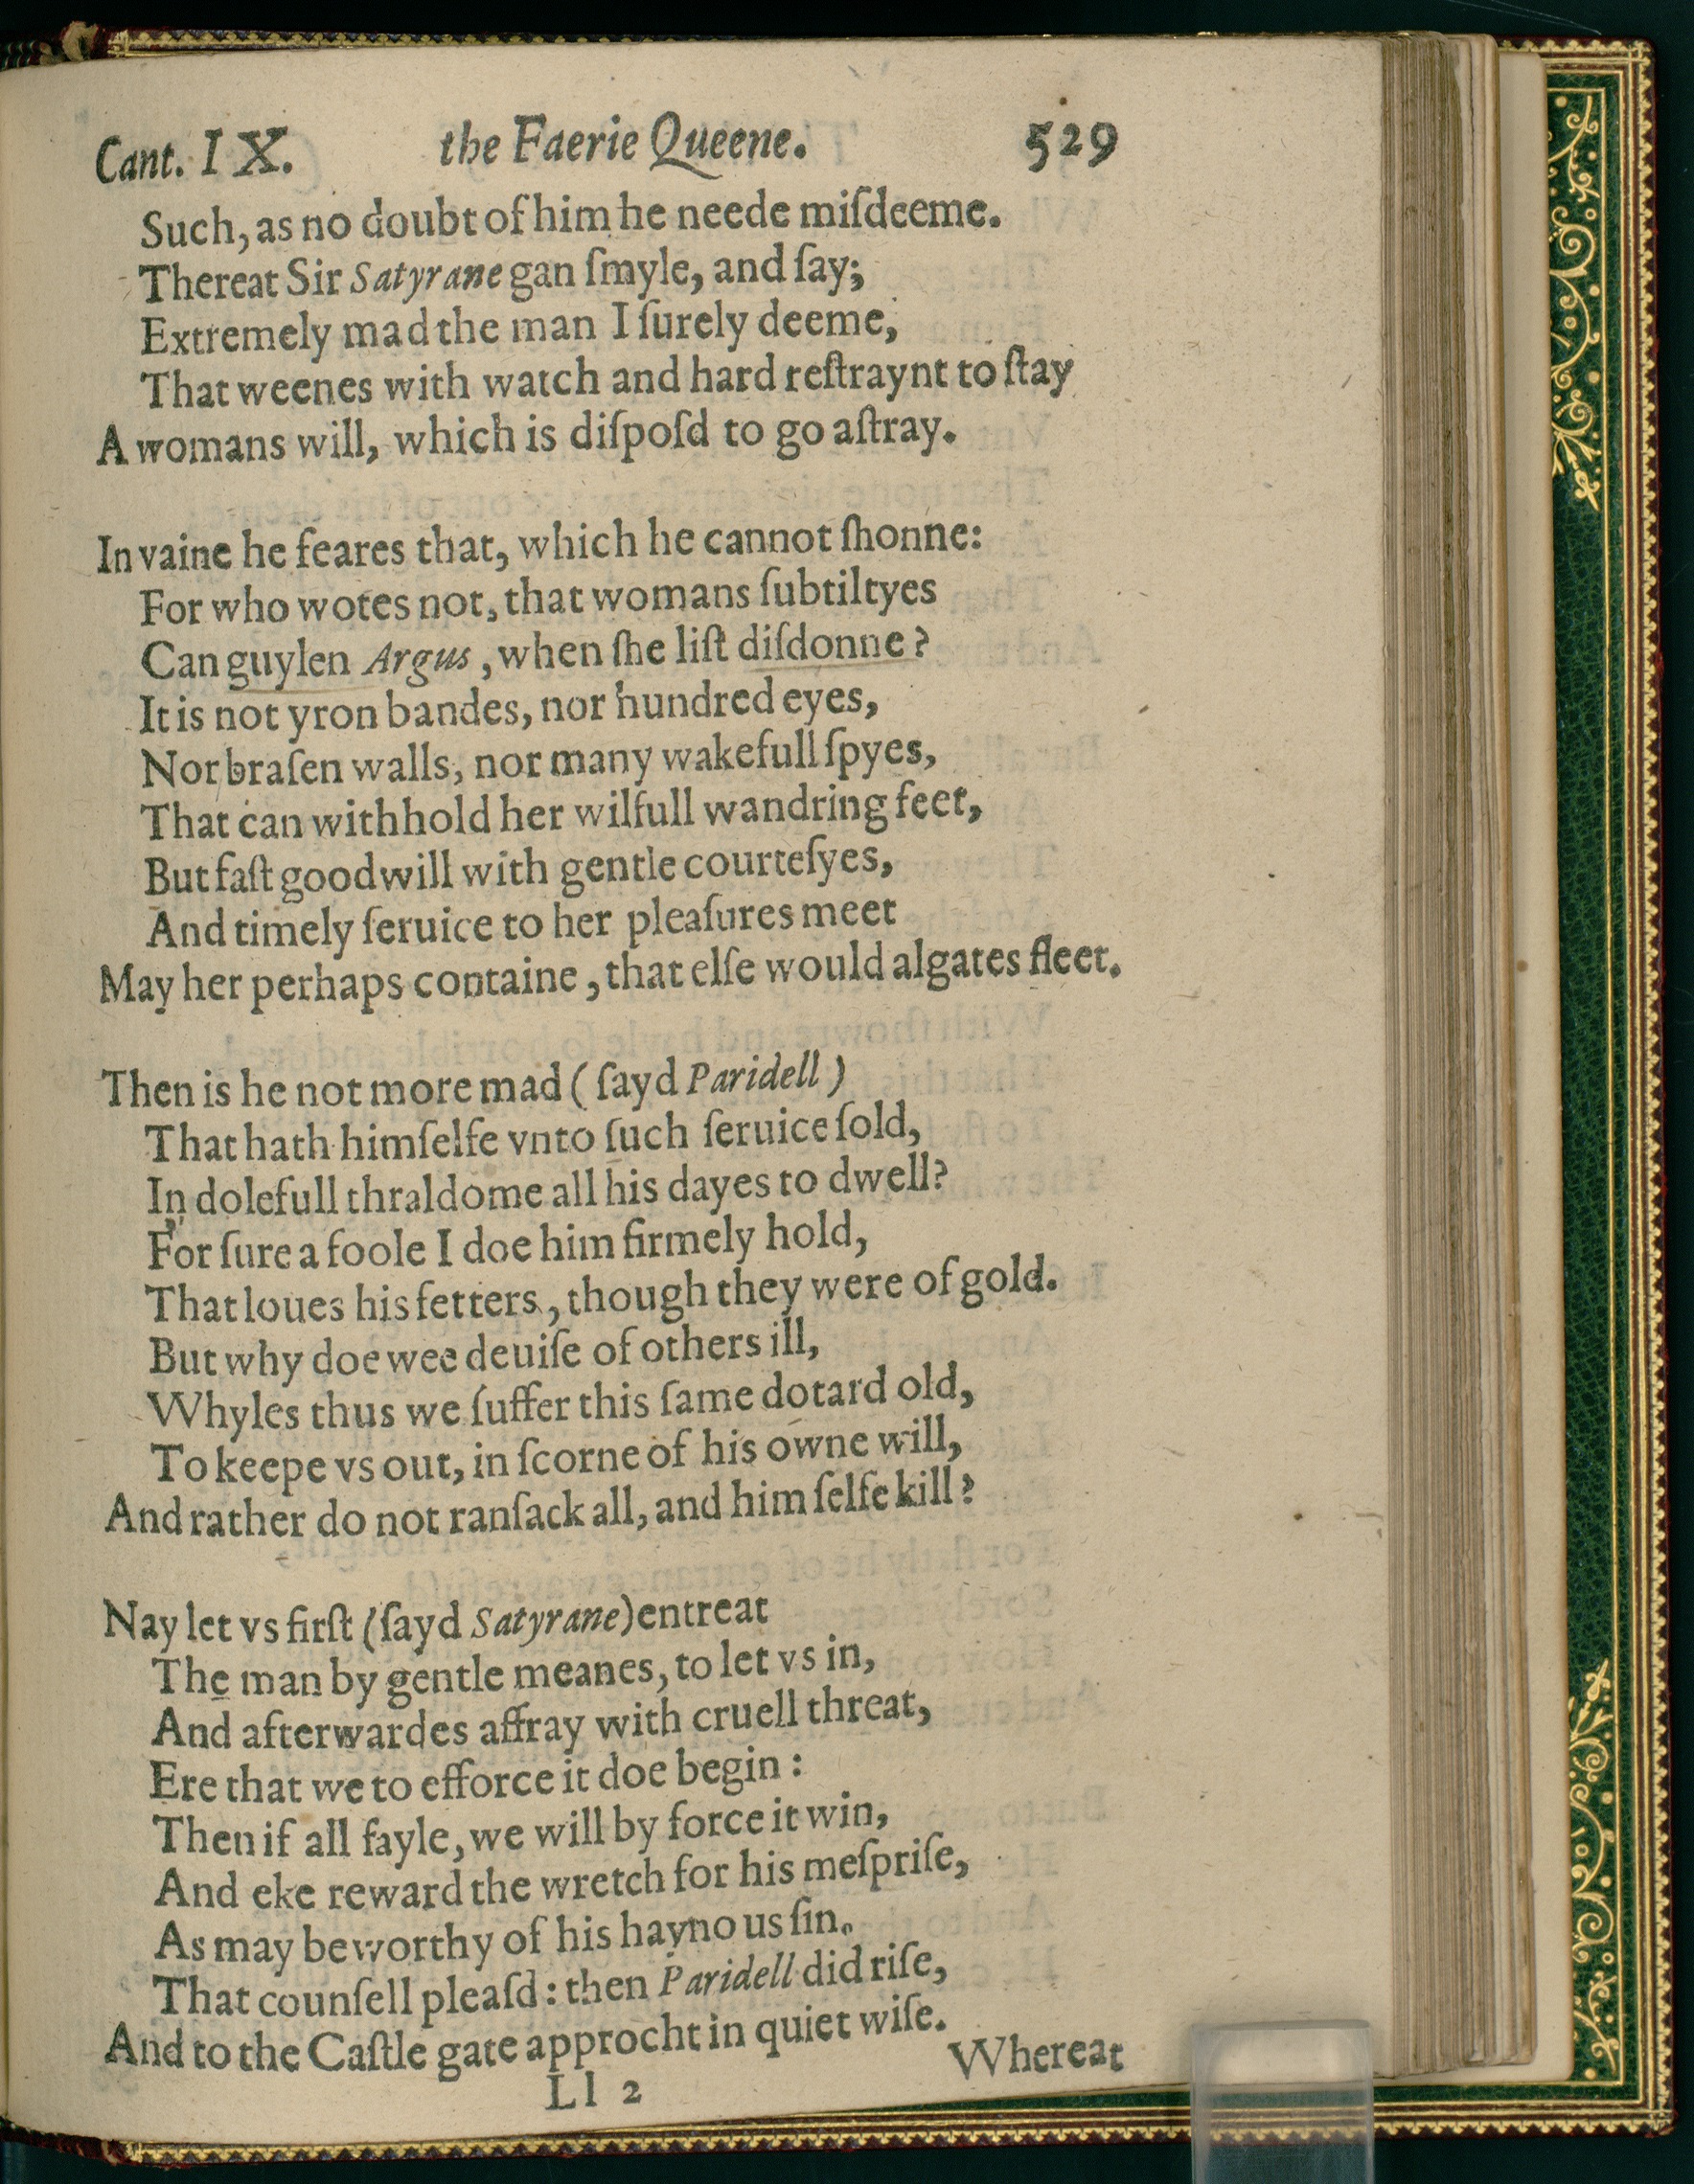 Cant. IX. the Faerie Queene. 529
Such, as no doubt of him he neede miſdeeme.
Thereat Sir Satyrane gan ſmyle, and ſay;
Extremely mad the man I ſurely deeme,
That weenes with watch and hard reſtraynt to ſtay
A womans will, which is diſpoſd to go aſtray.

In vaine he feares that, which he cannot ſhonne:
For who wotes not, that womans ſubtiltyes
Can guylen Argus, when ſhe liſt diſdonne?
It is not yron bandes, nor hundred eyes,
Nor braſen walls, nor many wakefull ſpyes,
That can withhold her wilfull wandring feet,
But faſt goodwill with gentle courteſyes,
And timely ſeruice to her pleaſures meet
May her perhaps containe, that elſe would algates fleet.

Then is he not more mad (ſayd Paridell)
That hath himſelfe vnto ſuch ſeruice ſold,
In dolefull thraldome all his dayes to dwell?
For ſure a foole I doe him firmely hold,
That loues his fetters, though they were of gold.
But why doe wee deuiſe of others ill,
Whyles thus we ſuffer this ſame dotard old,
To keepe vs out, in ſcorne of his owne will,
And rather do not ranſack all, and him ſelfe kill?

Nay let vs firſt (ſayd Satyrane) entreat
The man by gentle meanes, to let vs in,
And afterwardes affray with cruell threat,
Ere that we to efforce it doe begin:
Then if all fayle, we will by force it win,
And eke reward the wretch for his meſpriſe,
As may be worthy of his haynous ſin.
That counſell pleaſd: then Paridell did riſe,
And to the Caſtle gate approcht in quiet wiſe.
Whereat
Ll 2